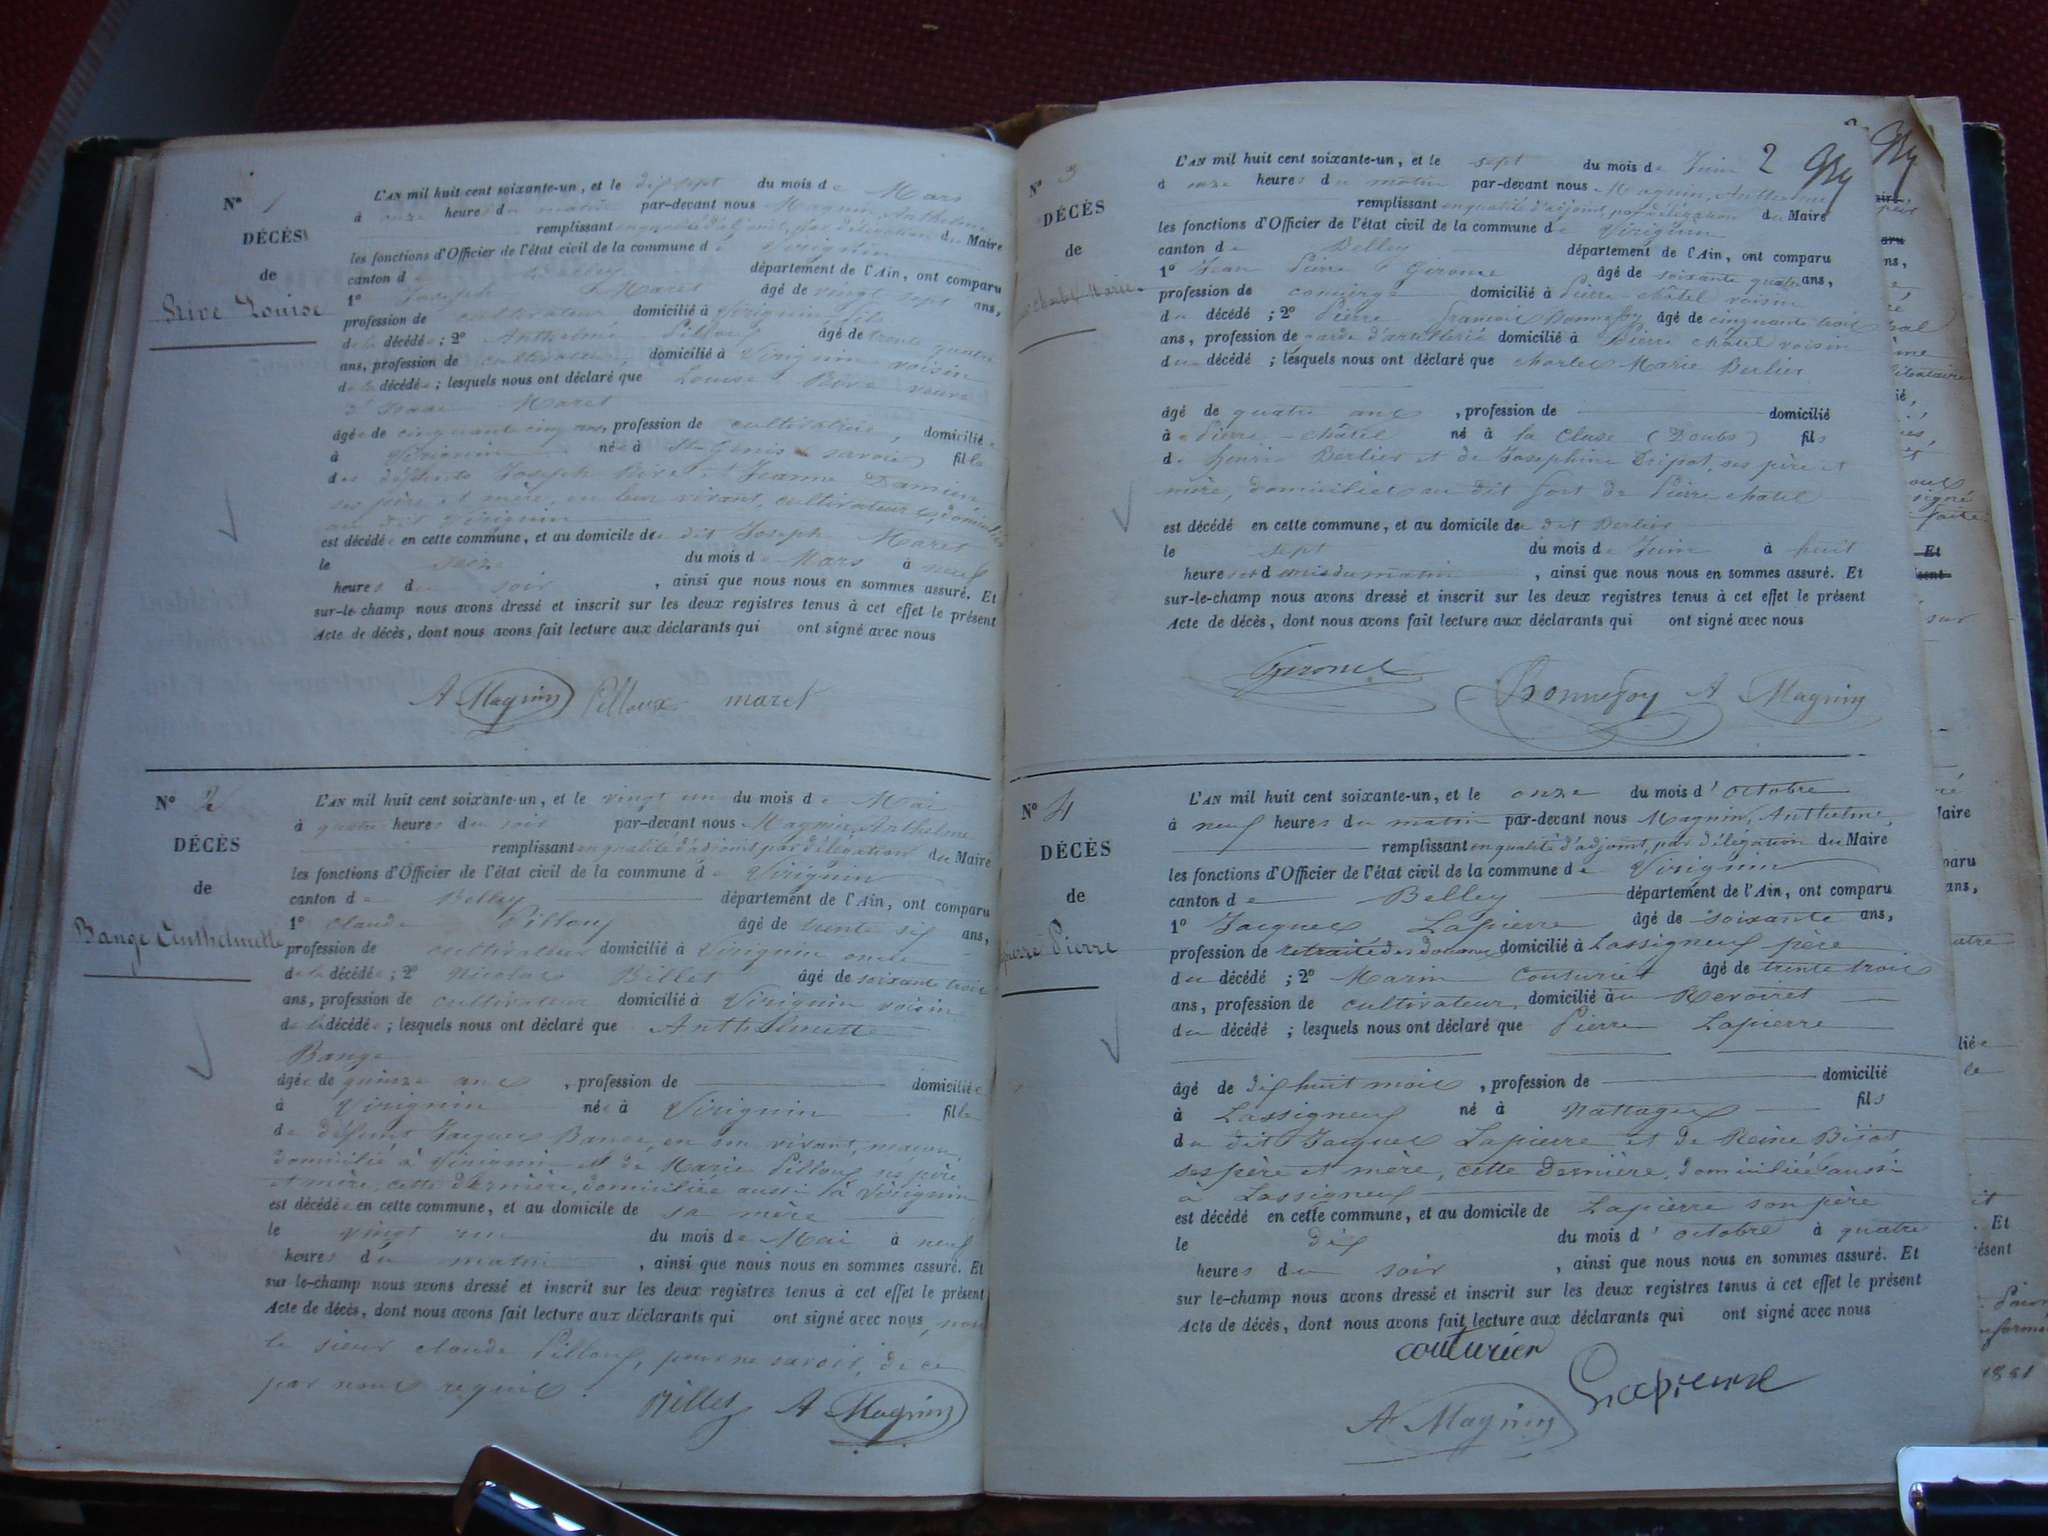 N° 1
DÉCÈS
de
Rive Louise
L'AN mil huit cent soixante-un, et le dix sept du mois de Mars
à onze heures du matin par-devant nous Magnin, Anthelme
remplissant en qualité d'adjoint, par délégation du Maire
les fonctions d'Officier de l'état civil de la commune de Virignin
canton de Belley département de l'Ain, ont comparu
1° Joseph Maret âgé de vingt sept ans,
profession de cultivateur domicilié à Virignin fils
de la décédée ; 2° Anthelme Pilloux âgé de trente quatre
ans, profession de cultivateur, domicilié à Virignin voisin
de la décédée ; lesquels nous ont déclaré que Louise Rive veuve
d'Isaac Maret
âgée de cinquante cinq ans, profession de cultivatrice, domiciliée
à Virignin née à St Genis (savoie) fille
des défunts Joseph Rive et Jeanne Damien
ses père et mère, en leur vivant, cultivateurs, domiciliés
au dit Virignin
est décédée en cette commune, et au domicile du dit Joseph Maret
le seize du mois de Mars à neuf
heures du soir, ainsi que nous nous en sommes assuré. Et
sur-le-champ nous avons dressé et inscrit sur les deux registres tenus à cet effet le présent
Acte de décès, dont nous avons fait lecture aux déclarants qui ont signé avec nous
A Magnin Pilloux maret
N° 2
DÉCÈS
de
Bange Anthelmette
L'AN mil huit cent soixante-un, et le vingt un du mois de Mai
à quatre heures du soir par-devant nous Magnin, Anthelme
remplissant en qualité d'adjoint, par délégation du Maire
les fonctions d'Officier de l'état civil de la commune de Virignin
canton de Belley département de l'Ain, ont comparu
1° Claude Pilloux âgé de trente six ans,
profession de cultivateur domicilié à Virignin oncle
de la décédée ; 2° Nicolas Billet âgé de soixante trois
ans, profession de cultivateur domicilié à Virignin voisin
de la décédée ; lesquels nous ont déclaré que Anthelmette
Bange
âgée de quinze ans, profession de domiciliée
à Virignin née à Virignin fille
de défunt Jacques Bange, en son vivant, maçon,
domicilié à Virignin et de Marie Pilloux ses père
et mère, cette dernière, domiciliée aussi à Virignin
est décédée en cette commune, et au domicile de sa mère
le vingt un du mois de Mai à neuf
heures du matin, ainsi que nous nous en sommes assuré. Et
sur le-champ nous avons dressé et inscrit sur les deux registres tenus à cet effet le présent
Acte de décès, dont nous avons fait lecture aux déclarants qui ont signé avec nous, non
le sieur claude Pilloux, pour ne savoir, de ce
par nous requis.
Billet A Magnin
2
N° 3
DÉCÈS
de
charles Marie
L'AN mil huit cent soixante-un, et le sept du mois de Juin
à onze heures du matin par-devant nous Magnin, Anthelme
remplissant en qualité d'adjoint, par délégation du Maire
les fonctions d'Officier de l'état civil de la commune de Virignin
canton de Belley département de l'Ain, ont comparu
1° Jean Pierre Gironce âgé de soixante quatre ans,
profession de concierge domicilié à Pierre-châtel voisin
du décédé ; 2° Pierre François Bonnefoy âgé de cinquante trois
ans, profession de garde d'artillerie domicilié à Pierre châtel voisin
du décédé ; lesquels nous ont déclaré que charles Marie Berlier
âgé de quatre ans, profession de domicilié
à Pierre-châtel né à la Cluse (Doubs) fils
de henri Berlier et de Josephine Tripot, ses père et
mère, domiciliés au dit fort de Pierre chatel
est décédé en cette commune, et au domicile du dit Berlier
le sept du mois de Juin à huit
heures et demie du matin, ainsi que nous nous en sommes assuré. Et
sur-le-champ nous avons dressé et inscrit sur les deux registres tenus à cet effet le présent
Acte de décès, dont nous avons fait lecture aux déclarants qui ont signé avec nous
Bonnefoy A Magnin
N° 4
DÉCÈS
de
pierre Pierre
L'AN mil huit cent soixante-un, et le onze du mois d'octobre
à neuf heures du matin par-devant nous Magnin, Anthelme,
remplissant en qualité d'adjoint, par délégation du Maire
les fonctions d'Officier de l'état civil de la commune de Virignin
canton de Belley département de l'Ain, ont comparu
1° Jacques Lapierre âgé de soixante ans,
profession de retraité des douanes domicilié à Lassigneux père
du décédé ; 2° Marin Couturier âgé de trente trois
ans, profession de cultivateur, domicilié au Revoiret
du décédé ; lesquels nous ont déclaré que Pierre Lapierre
âgé de dix huit mois, profession de domicilié
à Lassigneux né à Nattages fils
du dit Jacques Lapierre et de Reine Bizot
ses père et mère, cette dernière, domiciliée aussi
à Lassigneux
est décédé en cette commune, et au domicile de Lapierre son père
le dix du mois d'octobre à quatre
heures du soir, ainsi que nous nous en sommes assuré. Et
sur le-champ nous avons dressé et inscrit sur les deux registres tenus à cet effet le présent
Acte de décès, dont nous avons fait lecture aux déclarants qui ont signé avec nous
couturier
Lapierre
A Magnin